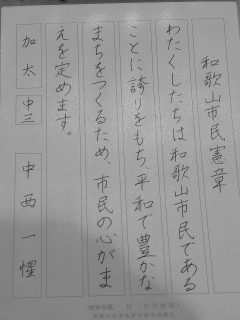 和歌山市民憲章
わたくしたちは和歌山市民である
ことに誇りをもち、平和で豊かな
まちをつくるため、市民の心がま
えを定めます。
加太 中三 中西一惺